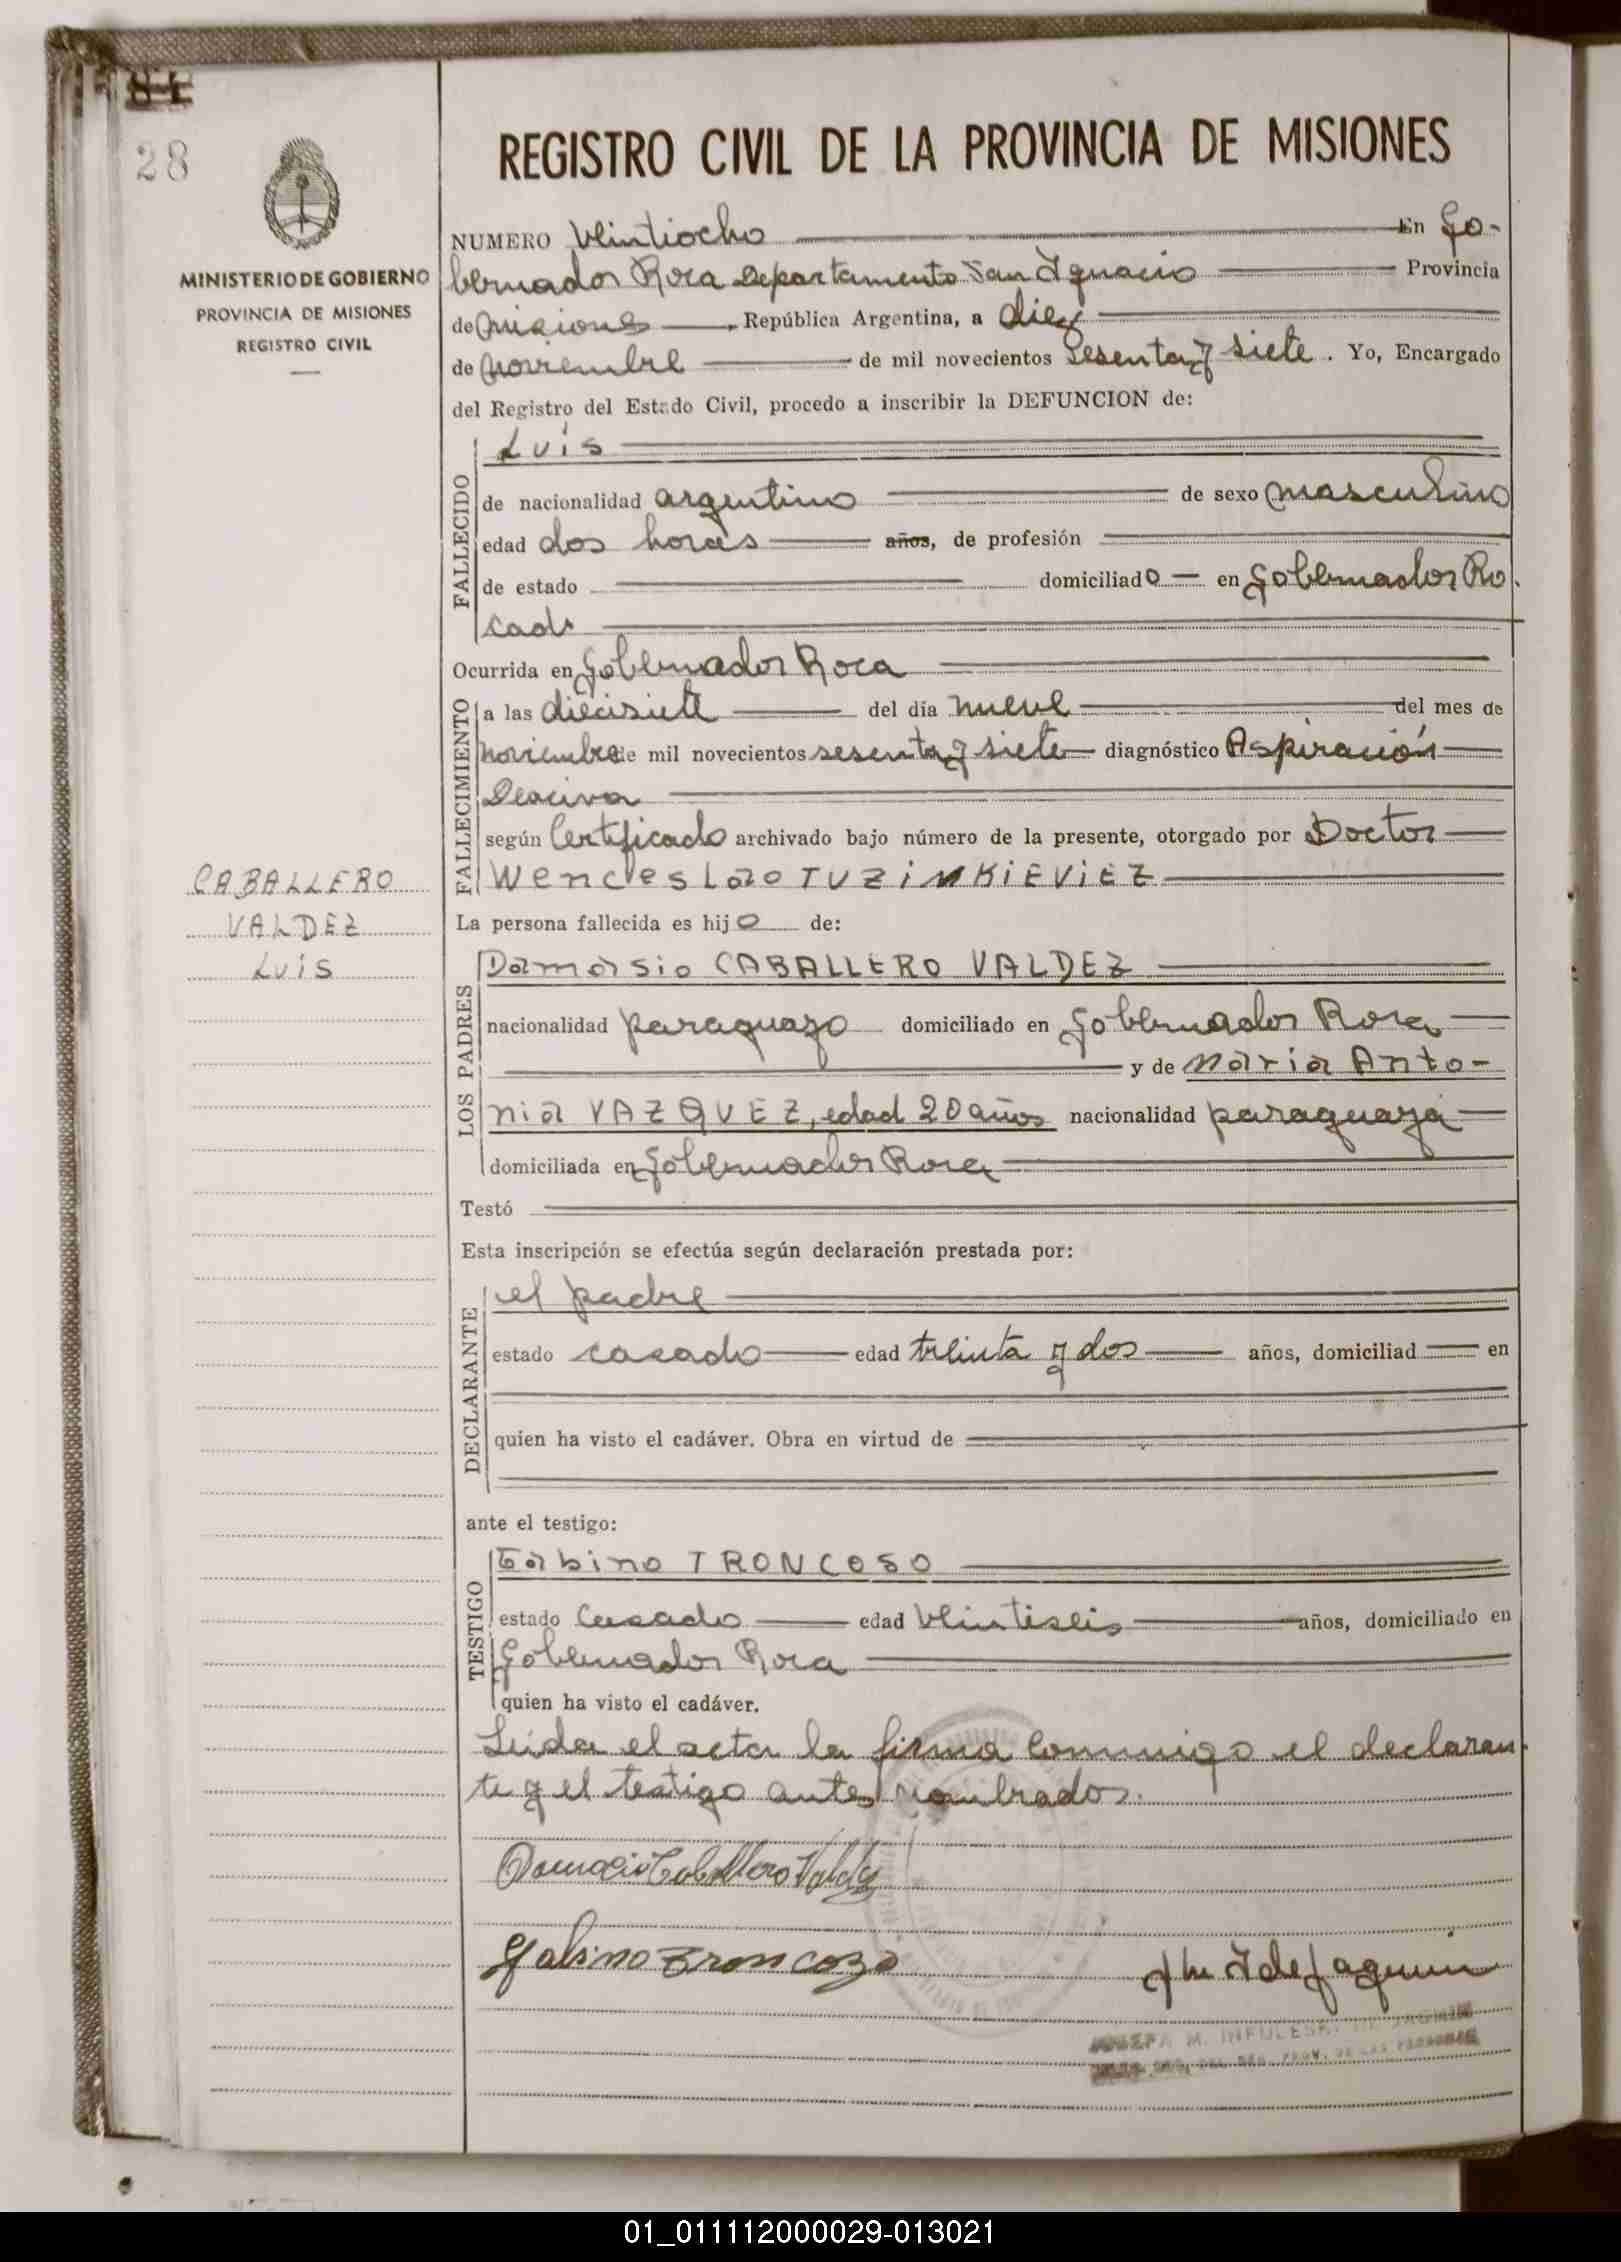 84
28
MINISTERIO DE GOBIERNO
PROVINCIA DE MISIONES
REGISTRO CIVIL
REGISTRO CIVIL DE LA PROVINCIA DE MISIONES
NUMERO Veintiocho En Go-
bernador Roca Departamento San Ignacio Provincia
de Misiones República Argentina, a diez
de noviembre de mil novecientos sesenta y siete. Yo, Encargado
del Registro del Estado Civil, procedo a inscribir la DEFUNCION de:
FALLECIDO
Luis
de nacionalidad argentino de sexo masculino
edad dos horas años, de profesión
de estado domiciliado en Gobernador Ro
Ocurrida en Gobernador Roca
FALLECIMIENTO
a las diecisiete del día nueve del mes de
noviembre de mil novecientos sesenta y siete diagnóstico Aspiración
según Certificado archivado bajo número de la presente, otorgado por Doctor
Wenceslao TUZINKIEVIEZ
CABALLERO
VALDEZ
Luis
La persona fallecida es hijo de:
LOS PADRES
Damasio CABALLERO VALDEZ
nacionalidad paraguayo domiciliado en Gobernador Roca
y de Maria Anto-
nia VAZQUEZ, edad 20 años nacionalidad paraguaya
domiciliada en Gobernador Roca
Testó
Esta inscripción se efectúa según declaración prestada por:
DECLARANTE
el padre
estado casado edad treinta y dos años, domiciliad en
quien ha visto el cadáver. Obra en virtud de
ante el testigo:
TESTIGO
Gabino TRONCOSO
estado casado edad veintiseis años, domiciliado en
Gobernador Roca
quien ha visto el cadáver.
Leida el acta la firma conmigo el declaran-
te y el testigo antes nombrados.
Damacio Caballero Valdez
Gabino Troncozo
JOSEFA M. INFULESKI DE JAGMIN
01_011112000029-013021